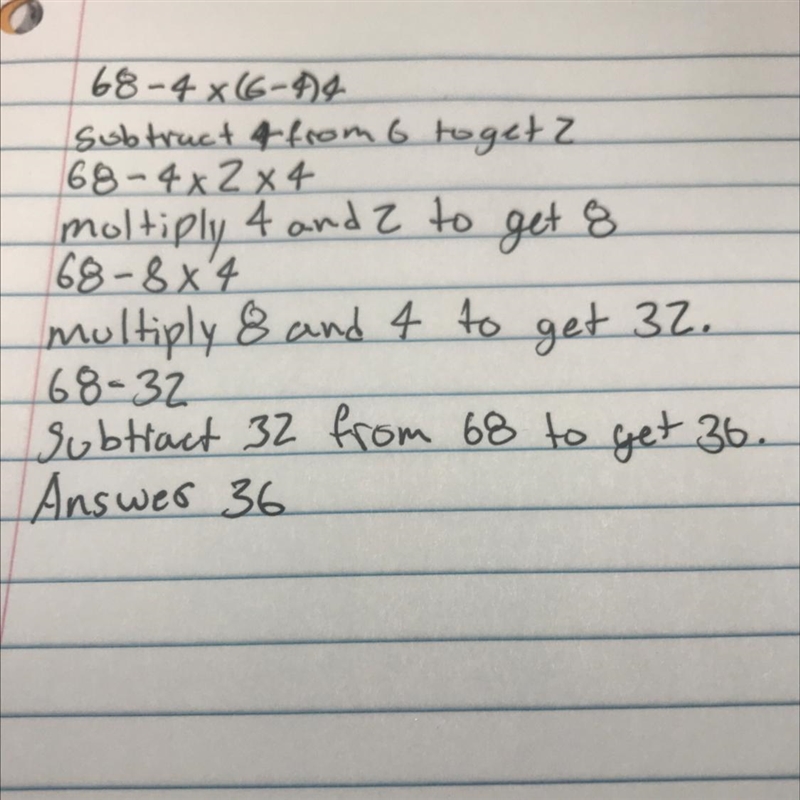 68-4x(6-4)4
Subtract 4 from 6 to get 2
68-4x2x4
moltiply 4 and 2 to get 8
68-8x4
multiply 8 and 4 to get 32.
68-32
Subtract 32 from 68 to get 36.
Answer 36